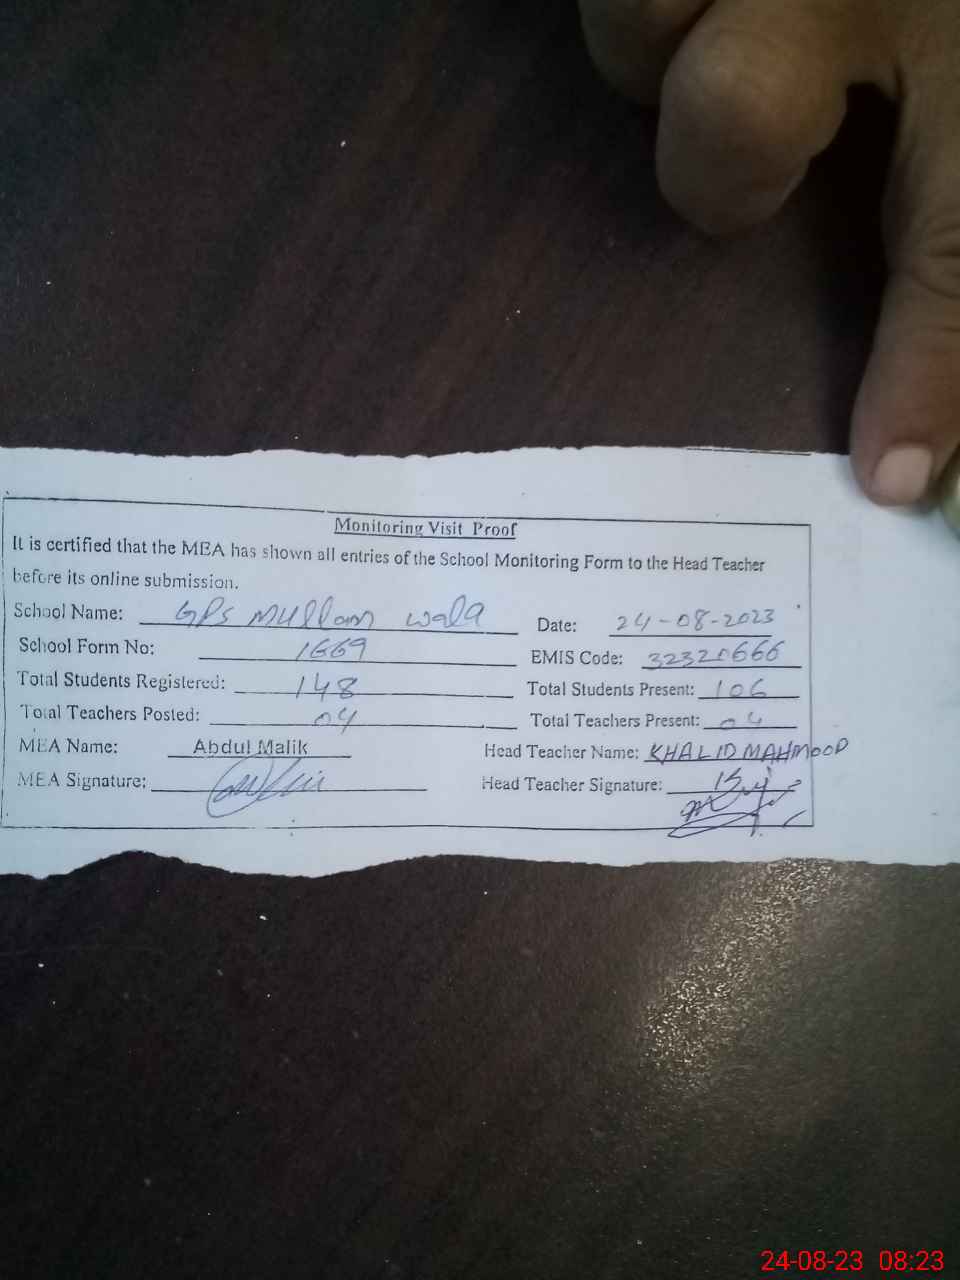 Monitoring Visit Proof
It is certified that the MEA has shown all entries of the School Monitoring Form to the Head Teacher
before its online submission.
School Name: GPS Mullan wala Date: 24-08-2023
School Form No: 1669 EMIS Code: 32320666
Total Students Registered: 148 Total Students Present: 106
Total Teachers Posted: 04 Total Teachers Present: 04
MEA Name: Abdul Malik Head Teacher Name: KHALID MAHMOOD
MEA Signature: Head Teacher Signature:
24-08-23 08:23